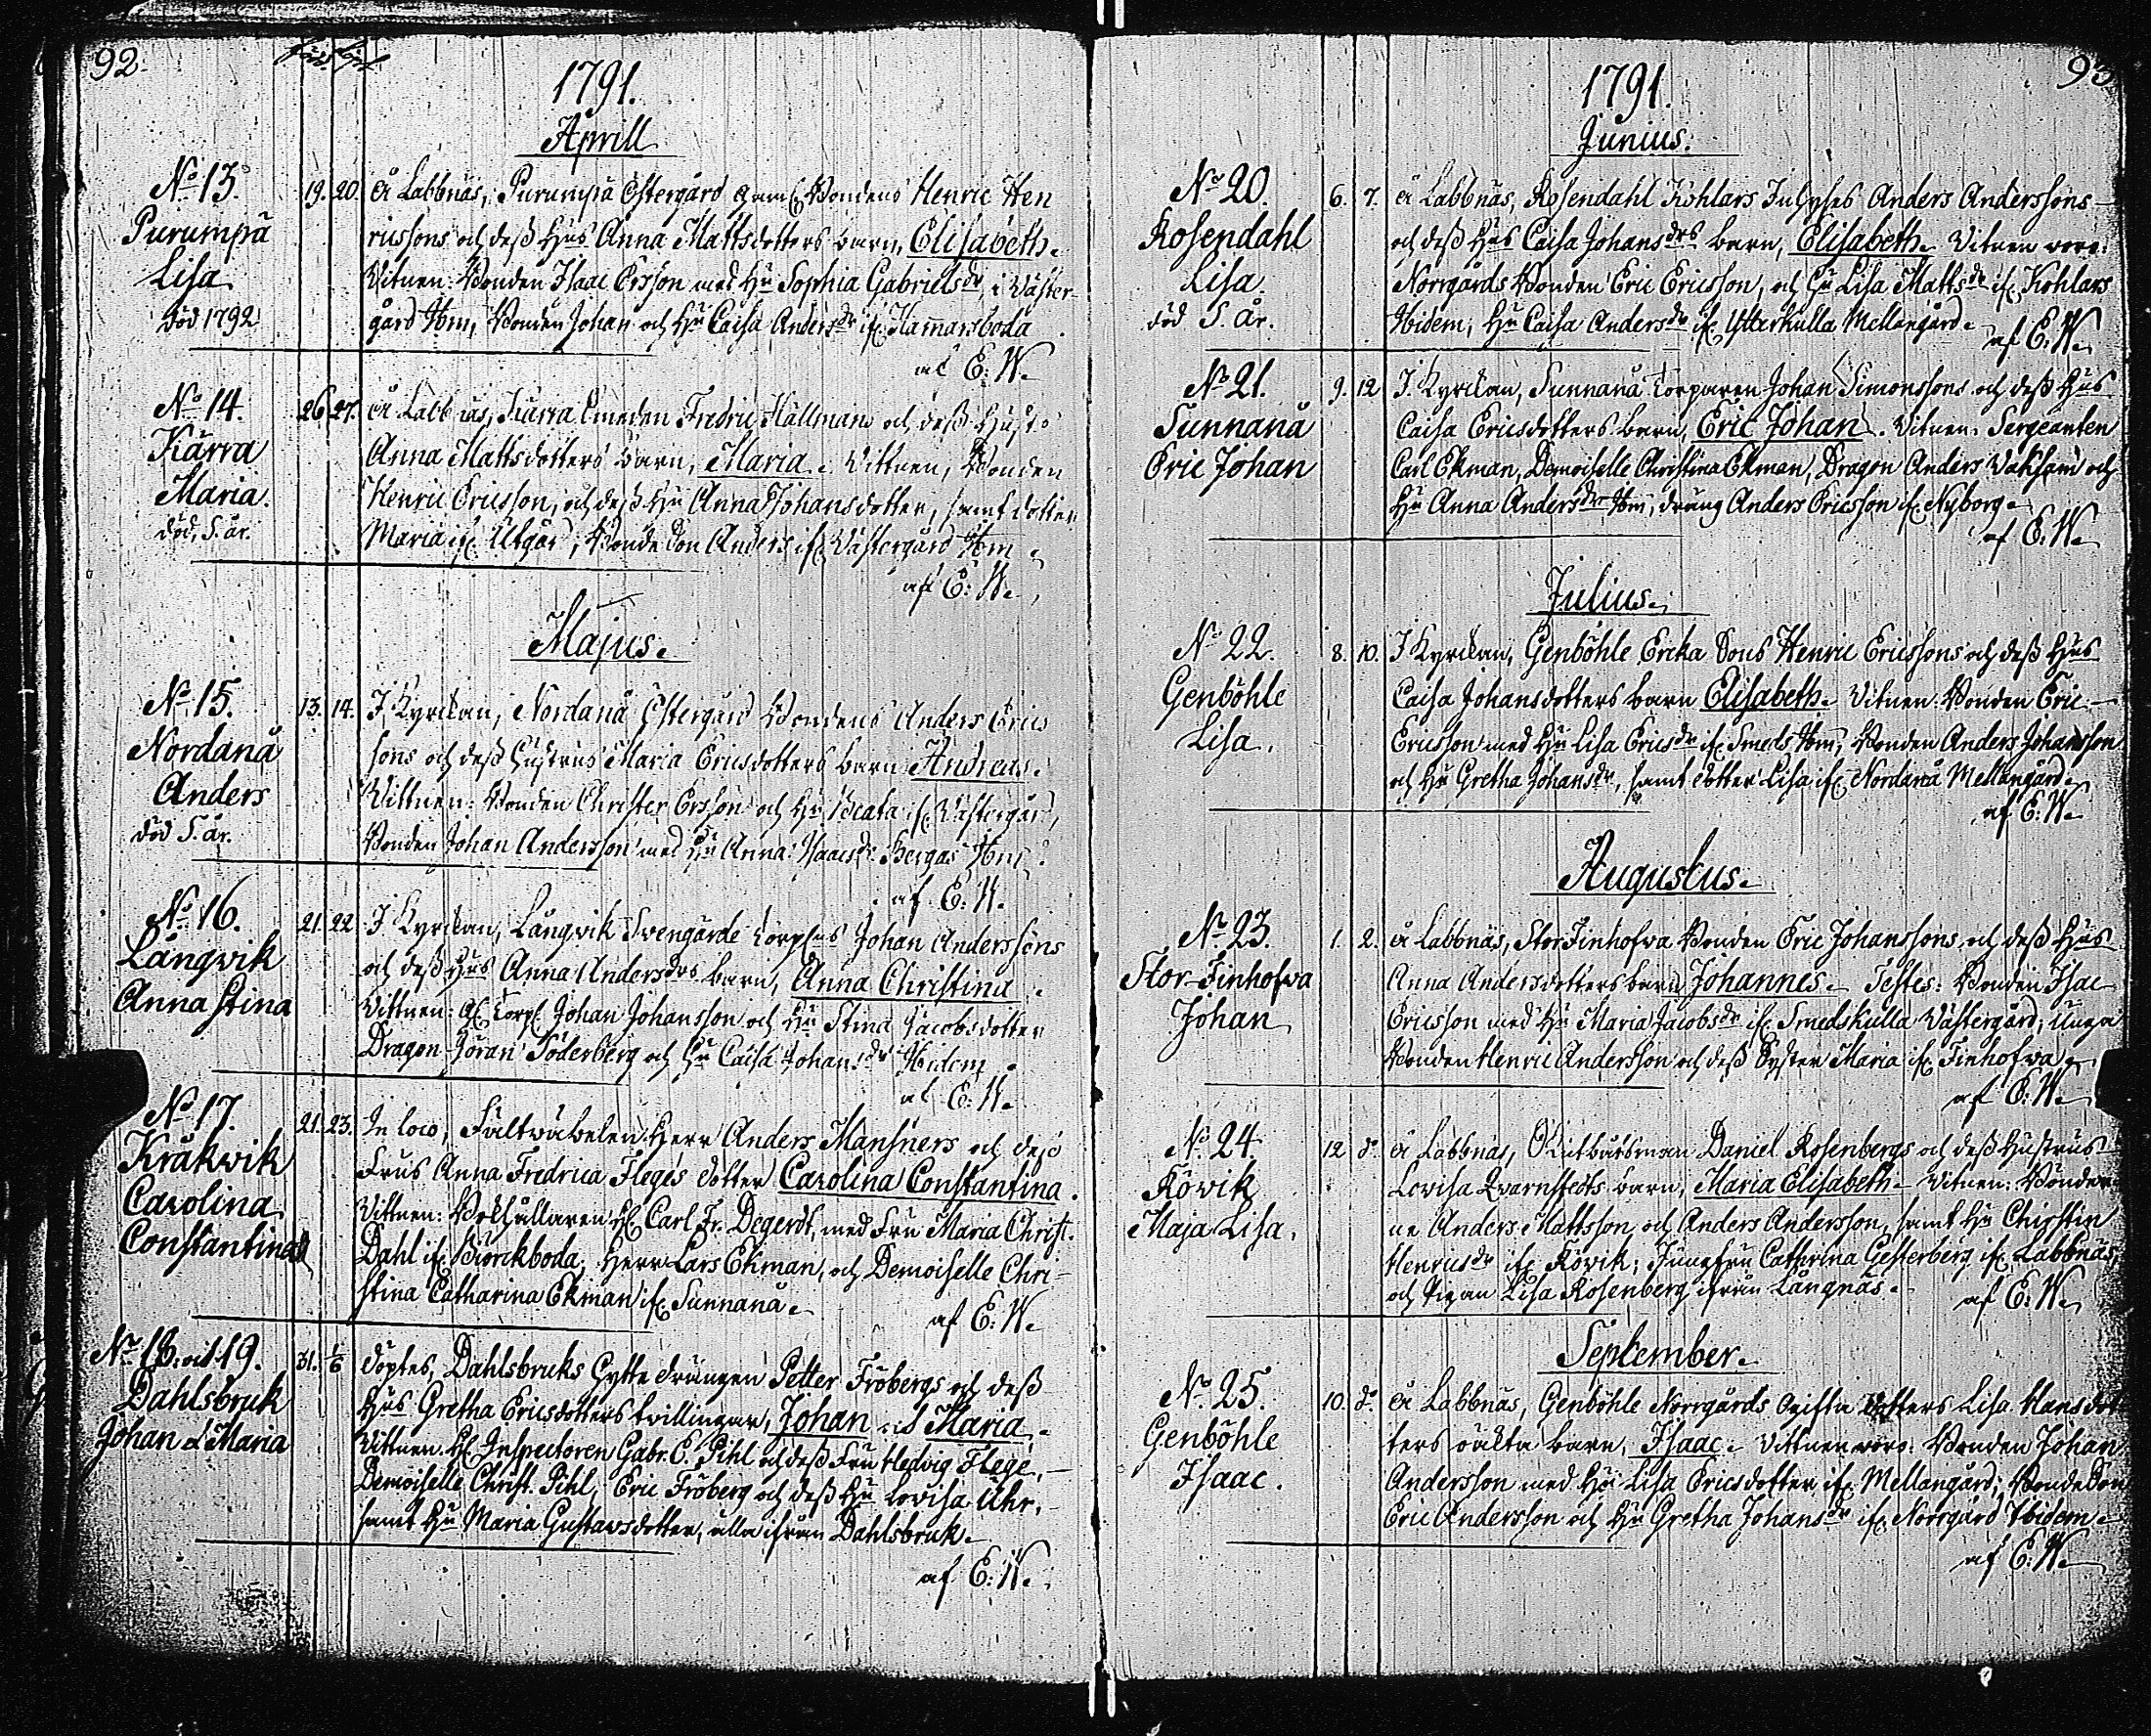 92.
1791.
Aprill
No 13.
Purumpä
Lisa
död 1792
19. 20. å Labbnäs, Purumpä Östergård Bondens Henric Hen
ricssons och dess Hus Anna Mattsdotters barn, Elisabeth.
Vitnen: Bonden Isaac Ersson med Hu Sophia Gabrielsdr, i Väster-
gård Ibm, Bonden Johan och Hu Caisa Andersdr if. Hammarsboda
af E. W.
No 14.
Kärra
Maria.
död, S. år.
26. 27. å Labbnäs, Kärra Smeden Fredric Hällmans och dess Hust:
Anna Mattsdotters barn, Maria. Vittnen, Bonden
Henric Ericsson, och dess Hu Anna Johansdotter, samt dotter
Maria if. Utgård, Bonde Son Anders if. Västergård Ibm.
af E: W.
Majus.
No 15.
Nordanå
Anders
död S. år.
13. 14. I Kyrckan, Nordanå Östergård Bondens Anders Erics
sons och dess Hustrus Maria Ericsdotters barn Andreas.
Vittnen: Bonden Christer Ersson och Hu Beata if. Västergård,
Bonden Johan Andersson med Hu Anna Isaacsdr Bergas Ibm.
af E. W.
No 16.
Långvik
Anna Stina
21. 22 I Kyrckan, Långvik Svengårde Torp Johan Anderssons
och dess Hus Anna Andersdrs barn, Anna Christina.
Vittnen: Torp. Johan Johansson och Hu Stina Jacobsdotter
Dragon Jöran Söderberg och Hu Caisa Johansdr Ibidem.
af E. W.
No 17.
Kråkvik
Carolina
Constantina
21. 23. In loco, Fältväbelen Herr Anders Mansners och dess
Frus Anna Fredrica Fleges dotter Carolina Constantina.
Vittnen: Bokhållaren H. Carl Fr. Degerdt, med Fru Maria Christ.
Dahl if. Biörckboda, Herr Lars Ekman, och Demoiselle Chri-
stina Catharina Ekman if. Sunnanå.
af E. W.
No 18. och 19.
Dahlsbruk
Johan & Maria
31. 1/6 döptes, Dahlsbruks Hytte drängen Petter Fröbergs och dess
Hus Gretha Ericsdotters tvillingar, Johan och Maria.
Vittnen. H. Inspectoren Gabr. E. Pihl och dess Fru Hedvig Flege,
Demoiselle Christ. Pihl, Eric Fröberg och dess Hu Lovisa Uhr,
samt Hu Maria Gustavsdotter, alla ifrån Dahlsbruk.
af E: W.
93
1791.
Junius.
No 20.
Rosendahl
Lisa.
död S. år.
6. 7. å Labbnäs, Rosendahl Kohlars Inhyses Anders Anderssons
och dess Hus Caisa Johansdrs barn, Elisabeth. Vitnen voro:
Norrgårds Bonden Eric Ericsson, och Hu Lisa Mattsdr if. Kohlars
Ibidem, Hu Caisa Andersdr if. Ytterkulla Mellangård.
af E. W.
No 21.
Sunnanå
Eric Johan
9. 12 I Kyrckan, Sunnanå Torparen Johan Simonssons och dess Hus
Caisa Ericsdotters barn, Eric Johan. Vitnen. Sergeanten
Carl Ekman, Demoiselle Christina Ekman, Dragon Anders Vaksam och
Hu Anna Andersdr Ibm, dräng Anders Ericsson if. Nyborg.
af E. W.
Julius.
No 22.
Genböhle
Lisa.
8. 10. I Kyrckan, Genböhle Ericka Sons Henric Ericssons och dess Hus
Caisa Johansdotters barn Elisabeth. Vitnen: Bonden Eric
Ericsson med Hu Lisa Ericsdr if. Smeds Ibm, Bonden Anders Johansson
och Hu Gretha Johansdr, samt dotter Lisa if. Nordanå Mellangård.
af E. W.
Augustus.
No 23.
Stor-Finhofva
Johan
1. 2. å Labbnäs, Stor Finhofva Bonden Eric Johanssons och dess Hus
Anna Andersdotters barn Johannes. Testes: Bonden Isac
Ericsson med Hu Maria Jacobsdr if. Smedskulla Västergård, unga
Bonden Henric Andersson och dess Syster Maria if. Finhofva.
af E. W.
No 24.
Rövik
Maja Lisa.
12 d. å Labbnäs, Båtsman Daniel Rosenbergs och dess Hustrus
Lovisa Qvarnstedts barn, Maria Elisabeth. Vitnen: Bönder
ne Anders Mattsson och Anders Andersson, samt Hu Christin
Henricsdr if. Rövik; Jungfru Cathrina Gesterberg if. Labbnäs,
och Pigan Lisa Rosenberg ifrån Långnäs.
af E. W.
September.
No 25.
Genböhle
Isaac.
10. d. å Labbnäs, Genböhle Norrgårds ogifta dotters Lisa Hansdot
ters oäkta barn, Isaac. Vittnen voro: Bonden Johan
Andersson med Hu Lisa Ericsdotter if. Mellangård; Bonde Son
Eric Andersson och Hu Gretha Johansdr if. Norrgård Ibidem.
af E. W.